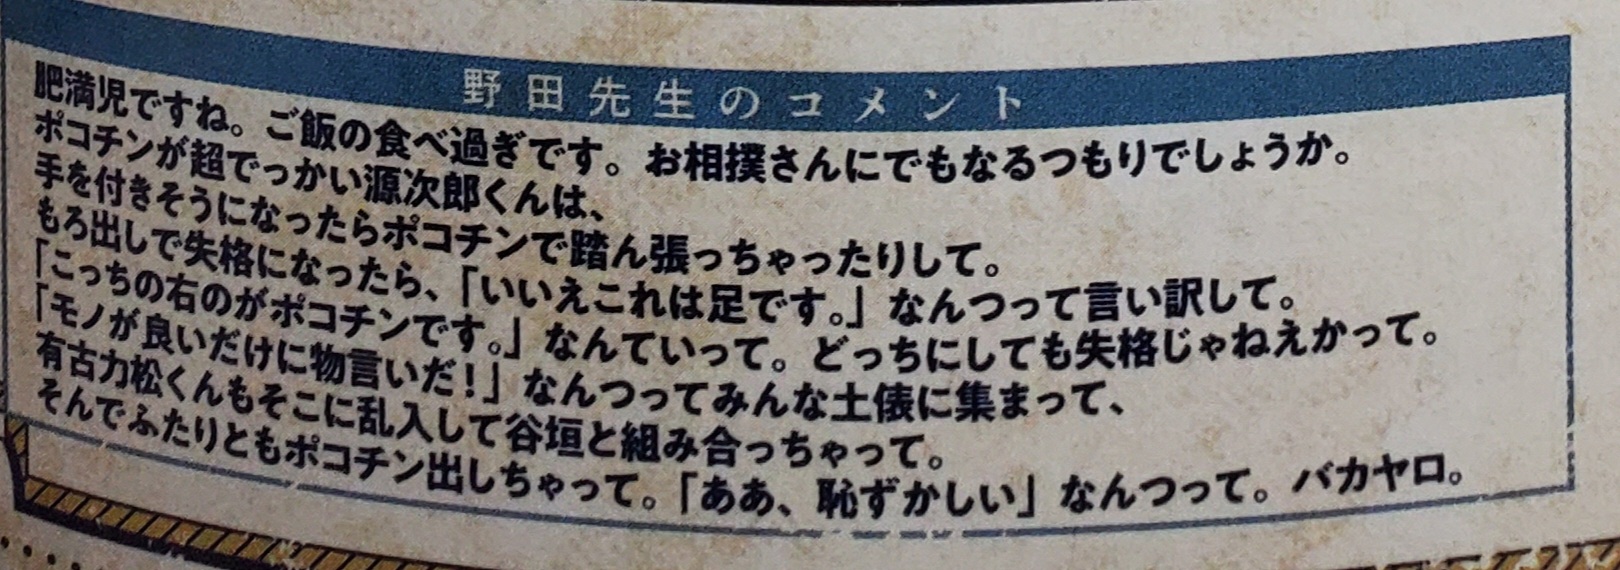 野田先生のコメント
肥満児ですね。ご飯の食べ過ぎです。お相撲さんにでもなるつもりでしょうか。
ポコチンが超でっかい源次郎くんは、
手を付きそうになったらポコチンで踏ん張っちゃったりして。
もろ出しで失格になったら、「いいえこれは足です。」なんつって言い訳して。
「こっちの右のがポコチンです。」なんていって。どっちにしても失格じゃねえかって。
「モノが良いだけに物言いだ!」なんつってみんな土俵に集まって、
有古力松くんもそこに乱入して谷垣と組み合っちゃって。
そんでふたりともポコチン出しちゃって。「ああ、恥ずかしい」なんつって。バカヤロ。